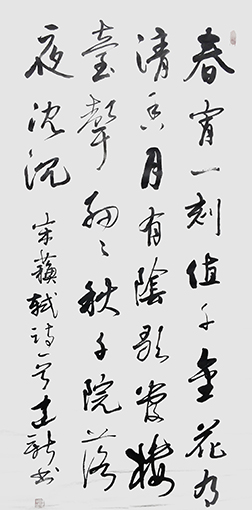 春宵一刻值千金花有
清香月有陰歌管樓
臺聲細々秋千院落
夜沈沉
宋蘇軾詩一首 書